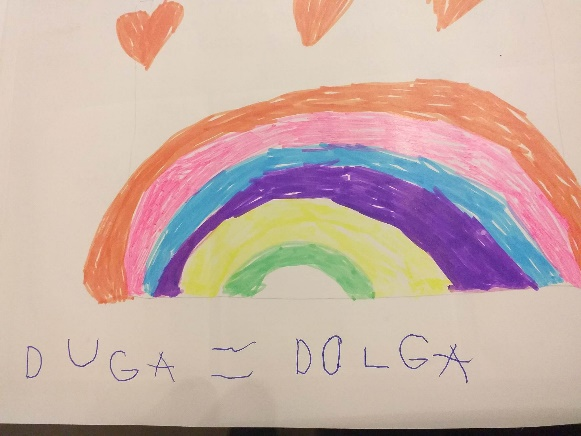 DUGA ≃ DOLGA